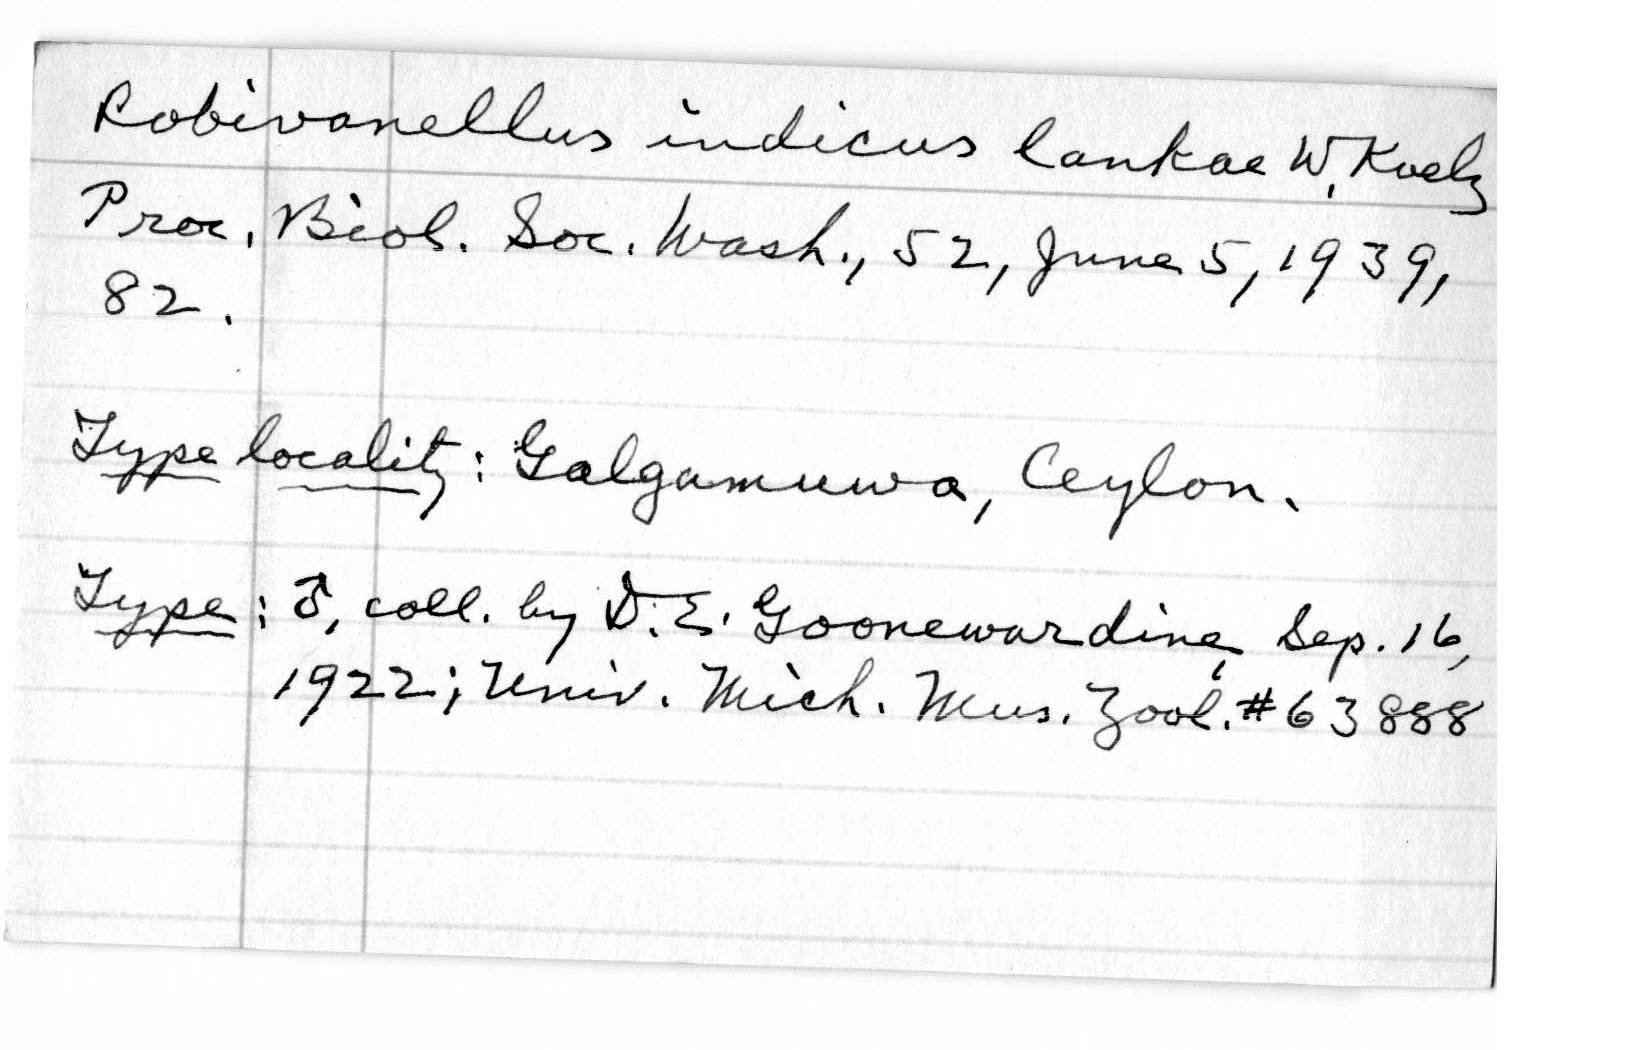 Lobivanellus indicus lankae W. Koelz
Proc. Biol. Soc. Wash., 52, June 5, 1939,
82.
Type locality: Galgamuwa, Ceylon.
Type: ♂, coll. by D. E. Goonewardine, Sep. 16,
1922; Univ. Mich. Mus. Zool. #63888